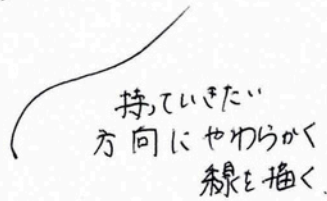 持っていきたい
方向にやわらかく
線を描く.